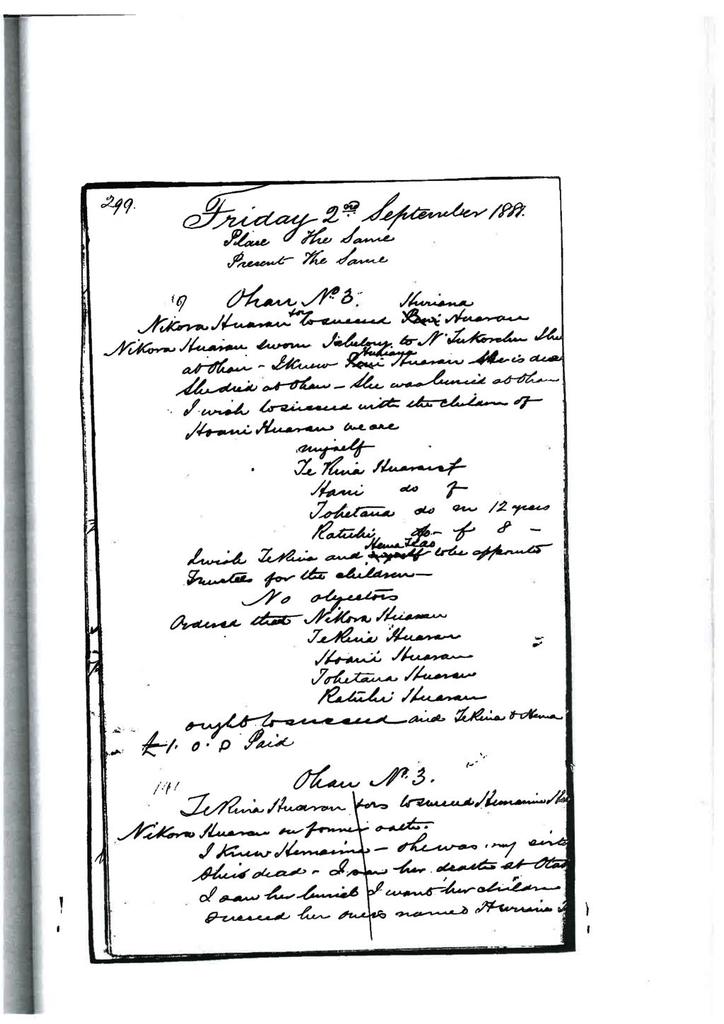 299.
Friday 2nd September 1881.
Place The Same
Present The Same
Ohau No 3.
Huriana
Nikora Huarau for to succeed Huarau
Nikora Huarau sworn I belong to N' Tukorehu I live
Huriana
at Ohau – I knew Huarau She is dea
She died at Ohau – She was buried at Ohau
I wish to succeed with the children of
Hoani Huarau we are
myself
Te Rina Huarau f
Hani do f
Tohetana do m 12 years
Ratuhi do – f 8 –
Hema
I wish Te Rina and to be appointe
Trustees for the children –
No objectors
Ordered that Nikora Huarau
Te Rina Huarau
Huarau
Tohetana Huarau
Ratuhi Huarau
ought to succeed and Te Rina & Hema
£1. 0. 0 Paid
Ohau No. 3.
Te Rina Huarau for to succeed
Nikora Huarau on former oath.
I knew – She was my siste
She is dead – I saw her death at
I saw her buried I want her children
succeed her one is named